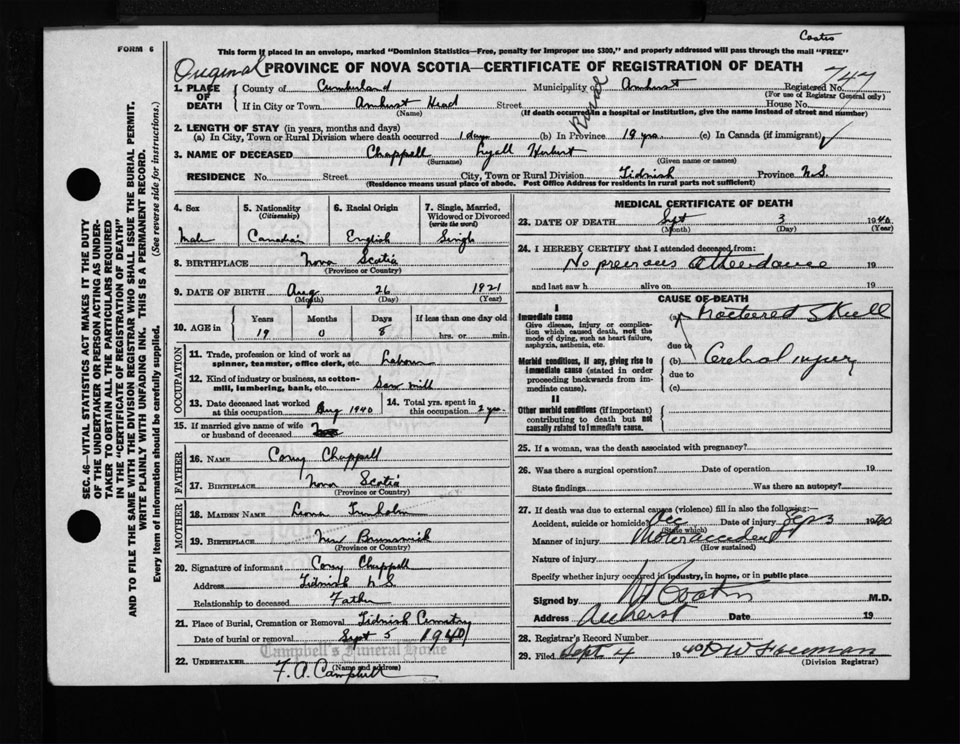 Coates
FORM 6
This form if placed in an envelope, marked "Dominion Statistics—Free, penalty for improper use $300," and properly addressed will pass through the mail "FREE"
Original PROVINCE OF NOVA SCOTIA—CERTIFICATE OF REGISTRATION OF DEATH
747
1. PLACE OF DEATH
County of Cumberland Municipality of Amherst Registered No.
(For use of Registrar General only)
If in City or Town Amherst Head Street House No.
(Name) (If death occurred in a hospital or institution, give the name instead of street and number)
Rural
2. LENGTH OF STAY (in years, months and days)
(a) In City, Town or Rural Division where death occurred 1 day (b) In Province 19 yrs. (c) In Canada (if immigrant)
3. NAME OF DECEASED Chappell Lyall Herbert
(Surname) (Given name or names)
RESIDENCE No. Street City, Town or Rural Division Tidnish Province N.S.
(Residence means usual place of abode. Post Office Address for residents in rural parts not sufficient)
4. Sex
Male
5. Nationality (Citizenship)
Canadian
6. Racial Origin
English
7. Single, Married, Widowed or Divorced (write the word)
Single
8. BIRTHPLACE Nova Scotia
(Province or Country)
9. DATE OF BIRTH Aug 26 1921
(Month) (Day) (Year)
10. AGE in Years Months Days If less than one day old
19 0 8 hrs. or min.
OCCUPATION
11. Trade, profession or kind of work as spinner, teamster, office clerk, etc. Laborer
12. Kind of industry or business, as cotton-mill, lumbering, bank, etc. Saw mill
13. Date deceased last worked at this occupation Aug 1940
14. Total yrs. spent in this occupation 2 yrs.
15. If married give name of wife or husband of deceased
FATHER
16. NAME Corey Chappell
17. BIRTHPLACE Nova Scotia
(Province or Country)
MOTHER
18. MAIDEN NAME Leona Trenholm
19. BIRTHPLACE New Brunswick
(Province or Country)
20. Signature of informant Corey Chappell
Address Tidnish N.S.
Relationship to deceased Father
21. Place of Burial, Cremation or Removal Tidnish Cemetery
Date of burial or removal Sept 5 1940
Campbell's Funeral Home
22. UNDERTAKER F. A. Campbell
(Name and address)
MEDICAL CERTIFICATE OF DEATH
23. DATE OF DEATH Sept 3 1940
(Month) (Day) (Year)
24. I HEREBY CERTIFY that I attended deceased from:
No previous attendance 19
and last saw h alive on 19
CAUSE OF DEATH
I
Immediate cause
Give disease, injury or complication which caused death, not the mode of dying, such as heart failure, asphyxia, asthenia, etc.
(a) Fractured Skull
due to
Morbid conditions, if any, giving rise to immediate cause (stated in order proceeding backwards from immediate cause).
(b) Cerebral injury
due to
(c)
II
Other morbid conditions (if important) contributing to death but not causally related to immediate cause.
25. If a woman, was the death associated with pregnancy?
26. Was there a surgical operation? Date of operation 19
State findings Was there an autopsy?
27. If death was due to external causes (violence) fill in also the following:—
Accident, suicide or homicide? Acc Date of injury Sep 3 1940
(State which)
Manner of injury Motor accident
(How sustained)
Nature of injury
Specify whether injury occurred in industry, in home, or in public place
Signed by Coates M.D.
Address Amherst Date 19
28. Registrar's Record Number
29. Filed Sept. 4 1940 D W Freeman
(Division Registrar)
SEC. 46—VITAL STATISTICS ACT MAKES IT THE DUTY
OF THE UNDERTAKER OR PERSON ACTING AS UNDER-
TAKER TO OBTAIN ALL THE PARTICULARS REQUIRED
IN THE "CERTIFICATE OF REGISTRATION OF DEATH" AND
TO FILE THE SAME WITH THE DIVISION REGISTRAR WHO SHALL ISSUE THE BURIAL PERMIT.
WRITE PLAINLY WITH UNFADING INK. THIS IS A PERMANENT RECORD.
Every item of information should be carefully supplied. (See reverse side for instructions.)